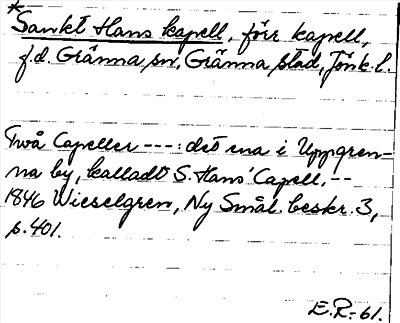 *
Sankt Hans kapell, förr kapell,
f.d. Gränna sn, Gränna stad, Jönk. l.
Två Capeller ---: det ena i Uppgren-
na by, kalladt S. Hans' Capell, --
1846 Wieselgren, Ny Smål. beskr. 3,
s. 401.
E.R.-61.